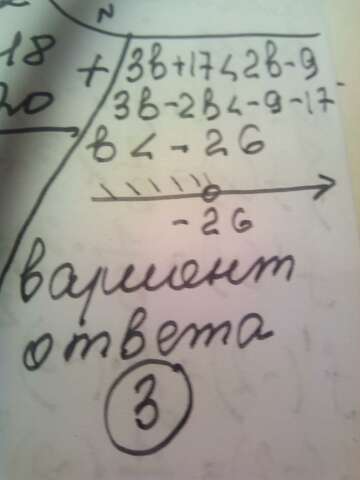 N
18
20
+ 3b+17<2b-9
3b-2b<-9-17
b < - 26
-26
вариент
ответа
3